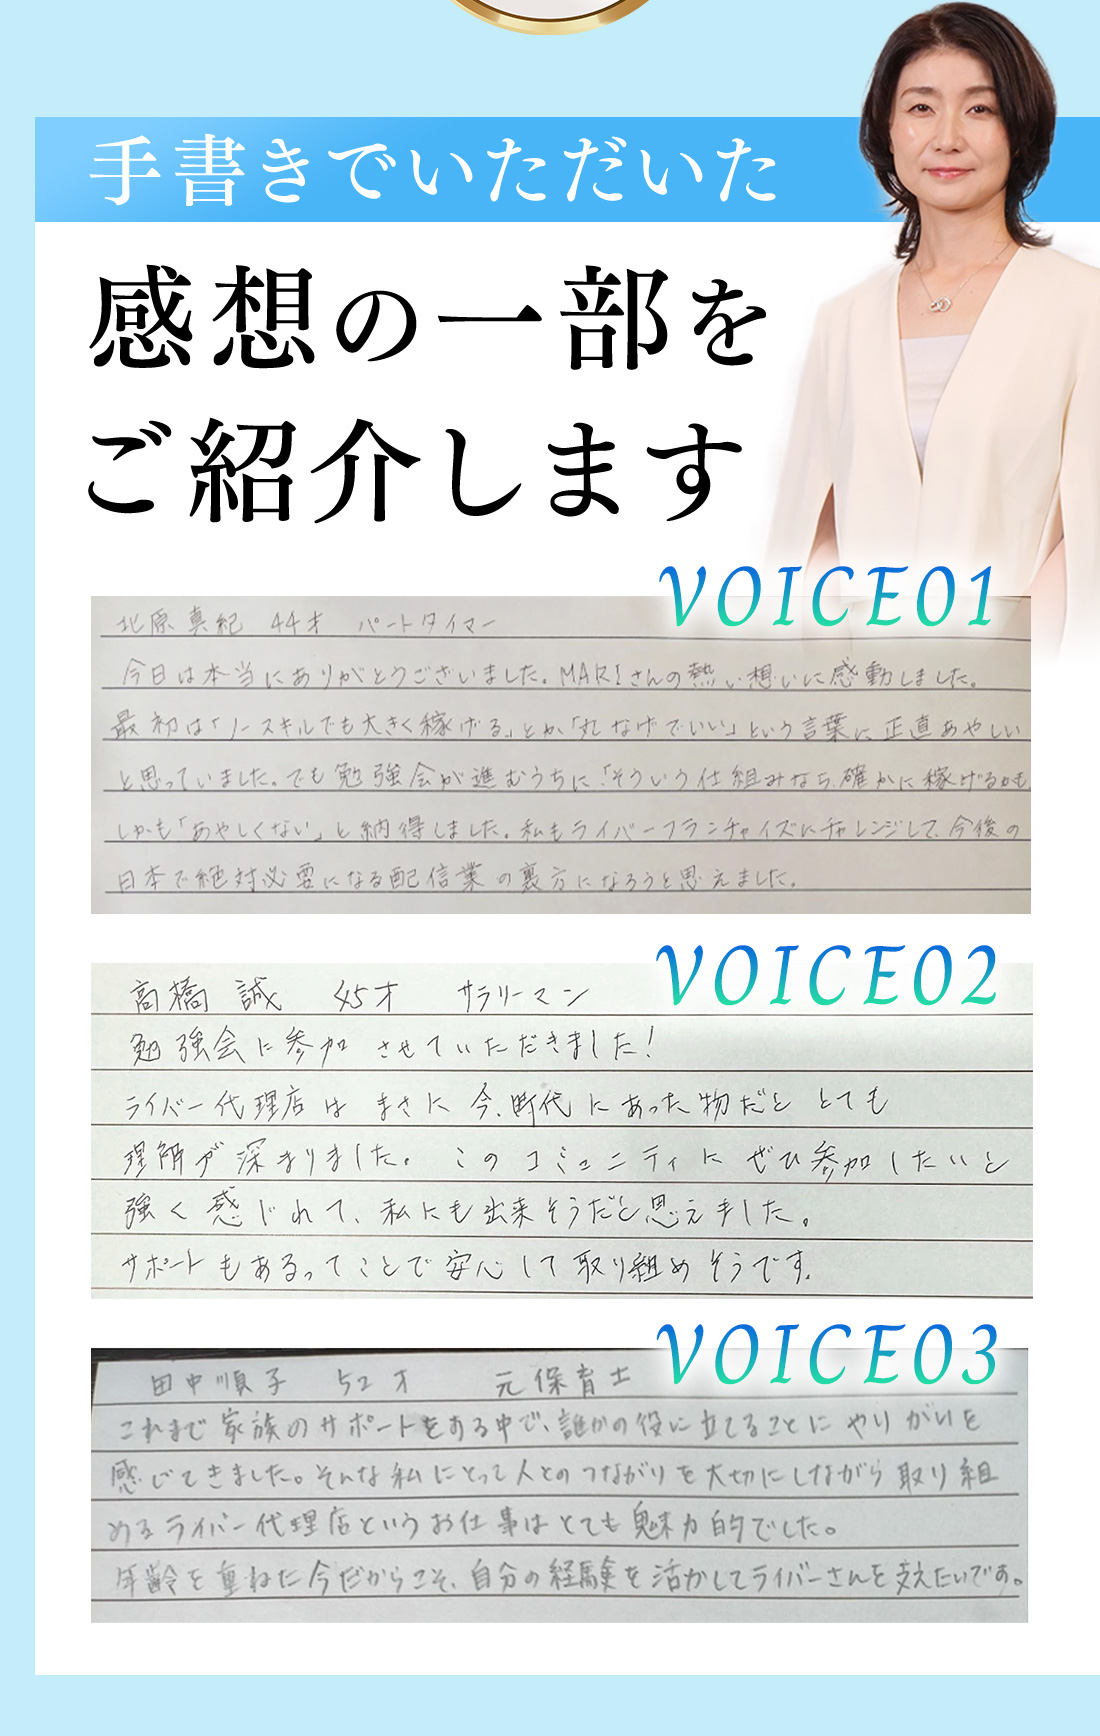 手書きでいただいた
感想の一部を
ご紹介します
VOICE01
北原真紀 44才 パートタイマー
今日は本当にありがとうございました。MARIさんの熱い想いに感動しました。
最初は「ノースキルでも大きく稼げる」とか「丸なげでいい」という言葉に正直あやしい
と思っていました。でも勉強会が進むうちに「そういう仕組みなら、確かに稼げるかも
しかも「あやしくない」と納得しました。私もライバーフランチャイズにチャレンジして、今後の
日本で絶対必要になる配信業の裏方になろうと思えました。
VOICE02
高橋 誠 45才 サラリーマン
勉強会に参加させていただきました!
ライバー代理店はまさに今、時代にあった物だととても
理解が深まりました。このコミュニティにぜひ参加したいと
強く感じれて、私にも出来そうだと思えました。
サポートもあるってことで安心して取り組めそうです。
VOICE03
田中順子 52才 元保育士
これまで家族のサポートをある中で、誰かの役に立てることにやりがいを
感じてきました。そんな私にとって人とのつながりを大切にしながら取り組
めるライバー代理店というお仕事はとても魅力的でした。
年齢を重ねた今だからこそ、自分の経験を活かしてライバーさんを支えたいです。